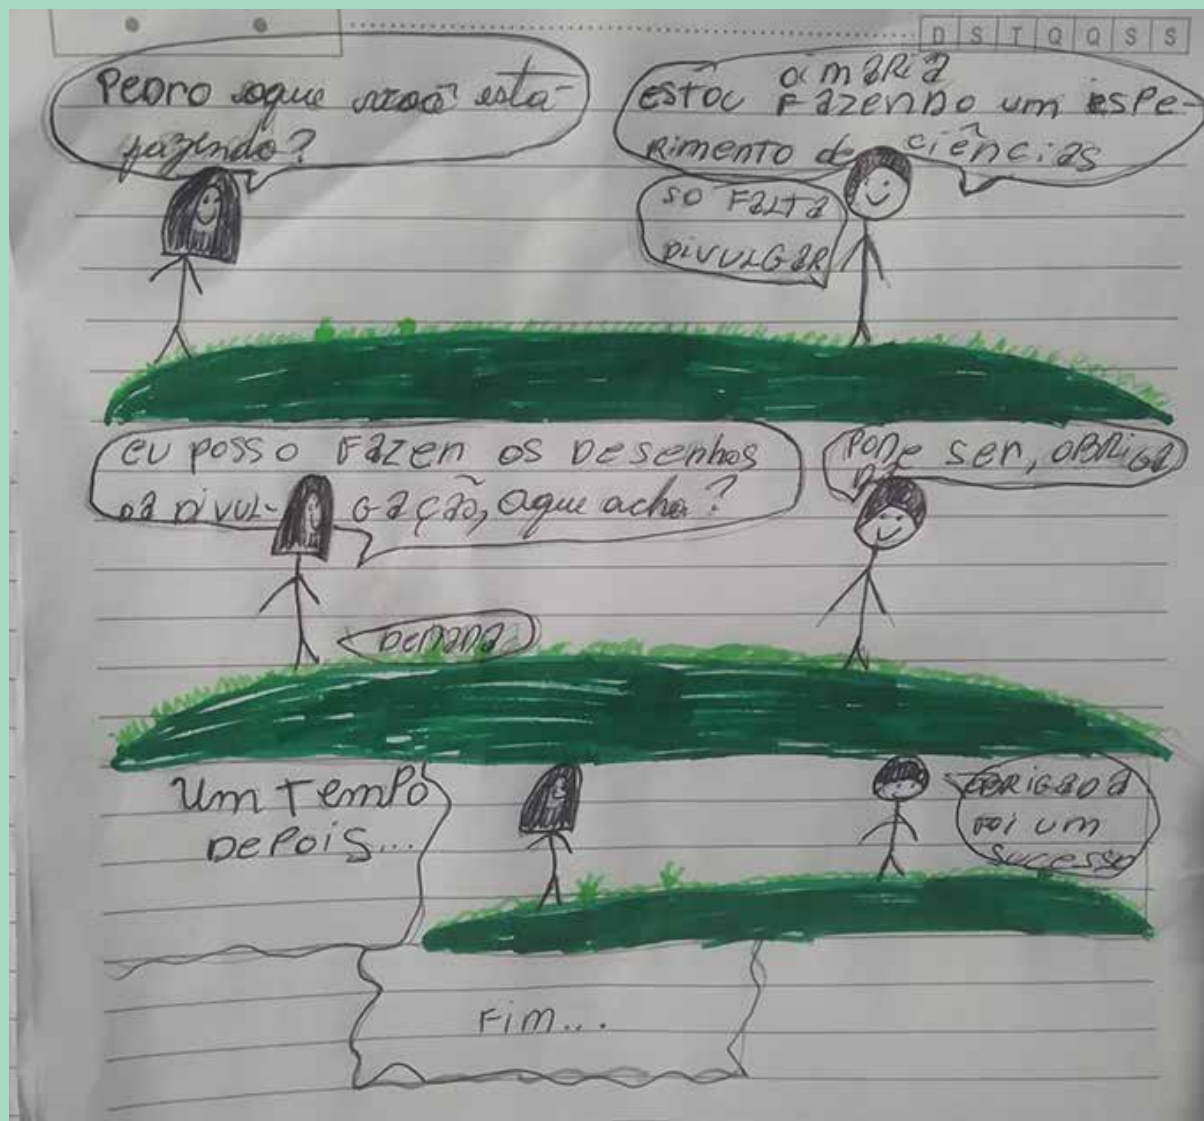 D S T Q Q S S
Pedro oque você está
fazendo?
Oi MARIA
ESTOU FAZENDO um espe-
RIMENTO de ciências
SÓ FALTA
DIVULGAR
EU POSSO FAZER OS DESENHOS
DA DIVUL- GAÇÃO, Oque acha?
PODE SER, OBRIGA
DA
DE NADA
Um TEMPO
DEPOIS...
OBRIGADA
FOI UM
SUCESSO
FIM...